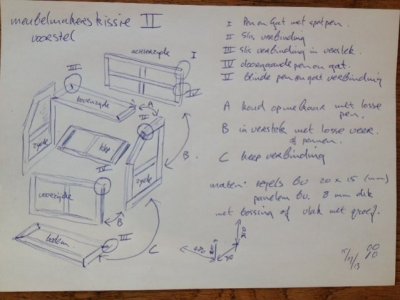 meubelmakerskissie II
voorstel
achterzyde
I
bovenzyde
II
III
A
klep
zyde
zyde
IV
B
voorzyde
B
bodem
III
C
I pen en gat met spatpen.
II slis verbinding
III slis verbinding in verstek.
IV doorgaande pen en gat.
V blinde pen en gat verbinding
A koud op mekaar met losse
pen.
B in verstek met losse veer.
of pennen.
C keep verbinding
maten: regels bv. 20 x 15 (mm)
panelen bv. 8 mm dik
met bossing of vlak met groef.